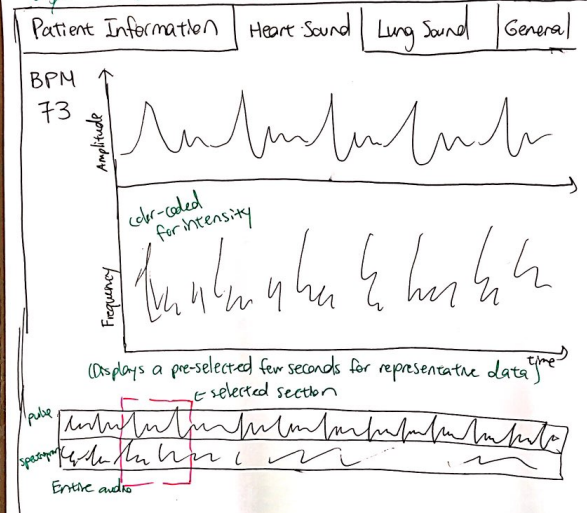 Patient Information
Heart Sound
Lung Sound
General
BPM
73
Amplitude
color-coded
for intensity
Frequency
time
(Displays a pre-selected few seconds for representative data)
← selected section
pulse
Entire audio